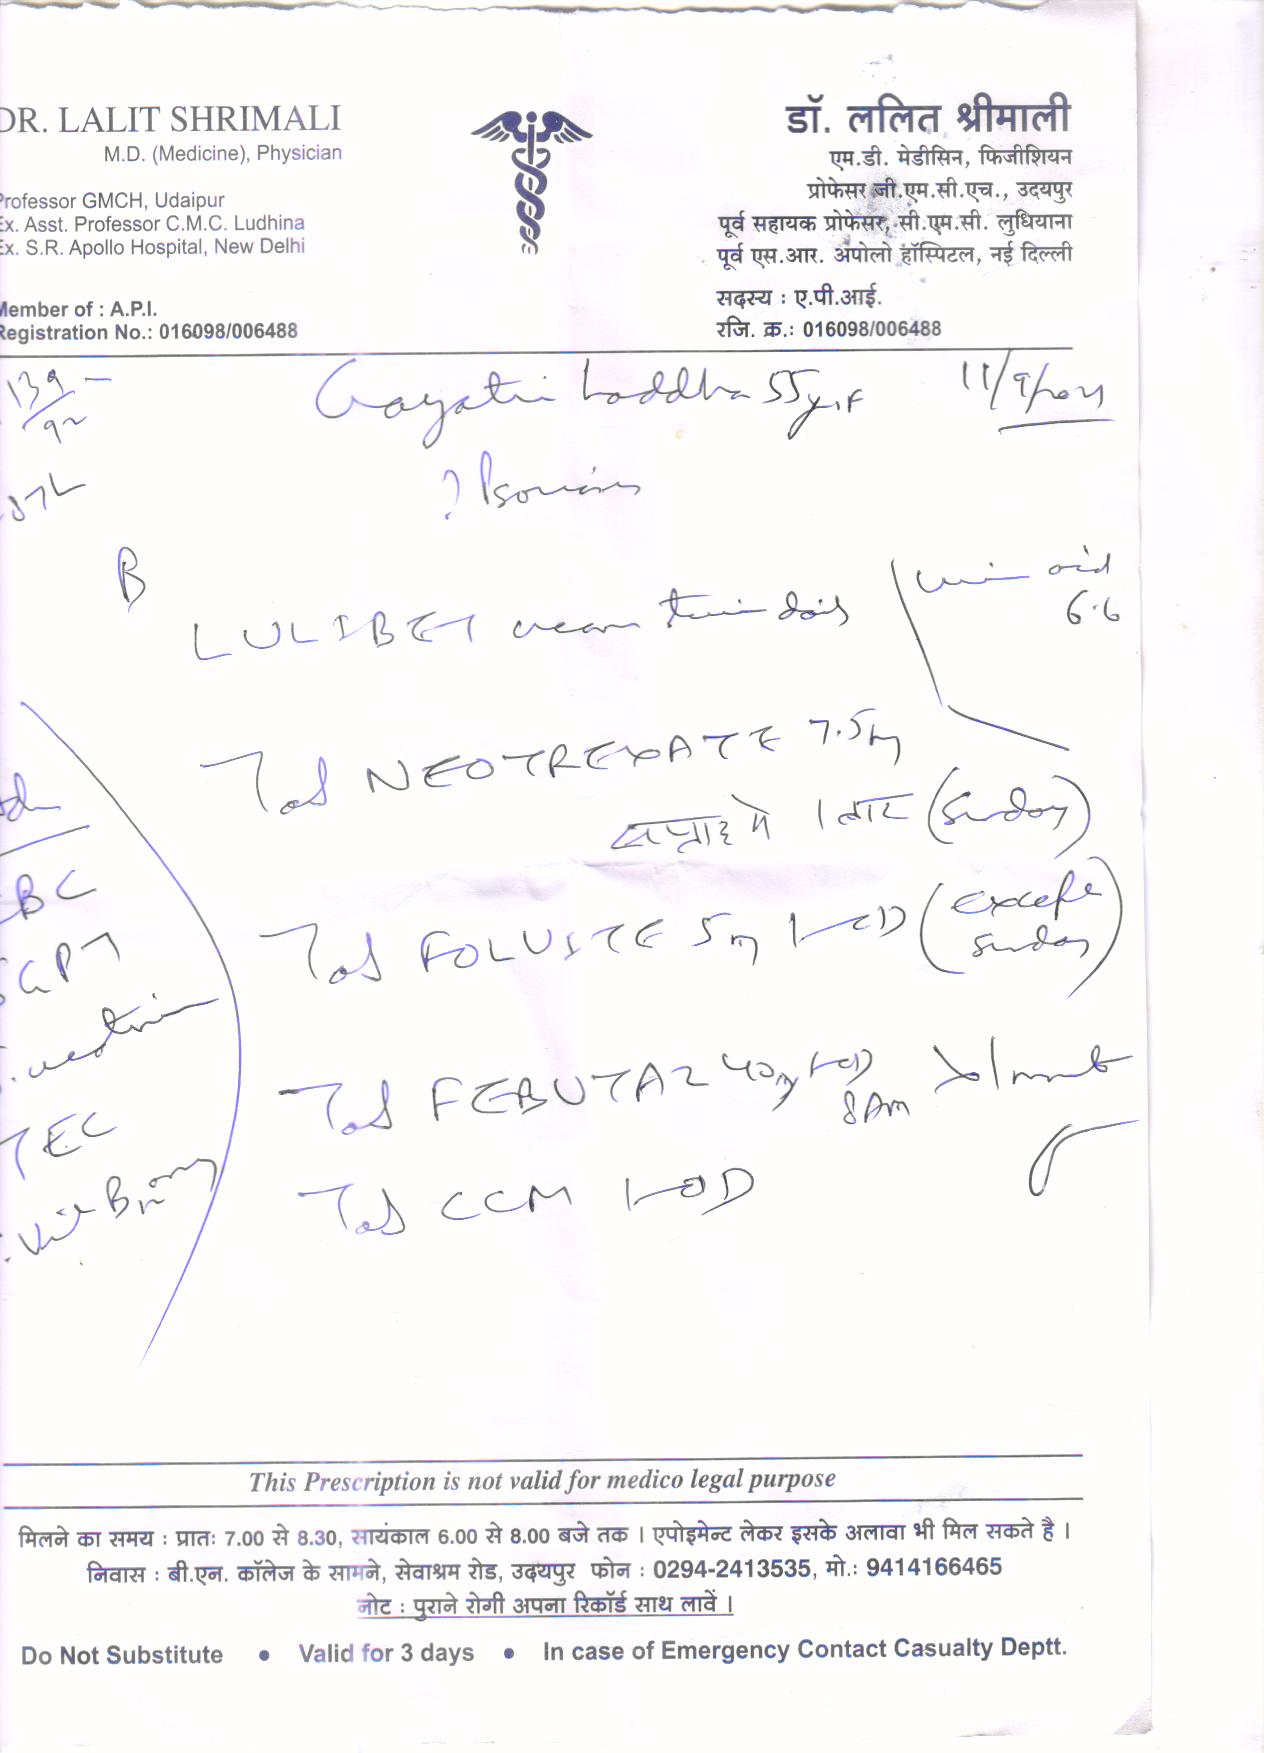 DR. LALIT SHRIMALI
M.D. (Medicine), Physician
Professor GMCH, Udaipur
Ex. Asst. Professor C.M.C. Ludhina
Ex. S.R. Apollo Hospital, New Delhi
Member of : A.P.I.
Registration No.: 016098/006488
डॉ. ललित श्रीमाली
एम.डी. मेडीसिन, फिजीशियन
प्रोफेसर जी.एम.सी.एच., उदयपुर
पूर्व सहायक प्रोफेसर, सी.एम.सी. लुधियाना
पूर्व एस.आर. अपोलो हॉस्पिटल, नई दिल्ली
सदस्य : ए.पी.आई.
रजि. क्र.: 016098/006488
139
92
Gayatri Laddha 55y,F
11/9/2021
? Psoriasis
LULIBET cream twice daily
uric acid
6.6
Tab NEOTREXATE 7.5mg
सप्ताह मे 1 बार (Sunday)
Tab FOLVITE 5mg 1-OD (except Sunday)
Tab FEBUTAZ 40mg 1-OD
8AM
x 1 month
Tab CCM 1-OD
CBC
SGPT
S. creatinine
TEC
S. Vit B12
This Prescription is not valid for medico legal purpose
मिलने का समय : प्रातः 7.00 से 8.30, सायंकाल 6.00 से 8.00 बजे तक । एपोइमेन्ट लेकर इसके अलावा भी मिल सकते है ।
निवास : बी.एन. कॉलेज के सामने, सेवाश्रम रोड, उदयपुर फोन : 0294-2413535, मो.: 9414166465
नोट : पुराने रोगी अपना रिकॉर्ड साथ लावें ।
Do Not Substitute • Valid for 3 days • In case of Emergency Contact Casualty Deptt.